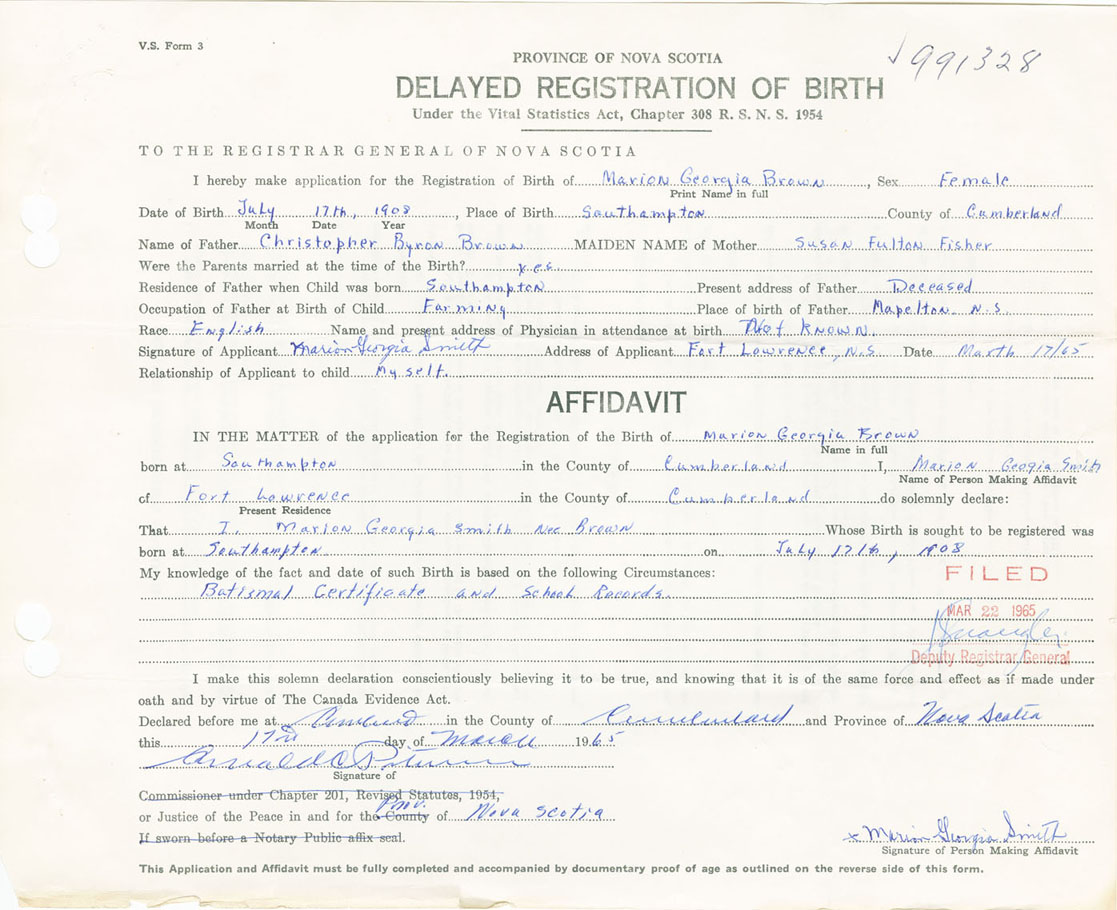 V.S. Form 3
991328
PROVINCE OF NOVA SCOTIA
DELAYED REGISTRATION OF BIRTH
Under the Vital Statistics Act, Chapter 308 R. S. N. S. 1954
TO THE REGISTRAR GENERAL OF NOVA SCOTIA
I hereby make application for the Registration of Birth of Marion Georgia Brown, Sex Female
Print Name in full
Date of Birth July 17th, 1908, Place of Birth Southampton County of Cumberland
Month Date Year
Name of Father Christopher Byron Brown MAIDEN NAME of Mother Susan Fulton Fisher
Were the Parents married at the time of the Birth? yes
Residence of Father when Child was born Southampton Present address of Father Deceased
Occupation of Father at Birth of Child Farming Place of birth of Father Mapelton. N.S.
Race English Name and present address of Physician in attendance at birth Not Known.
Signature of Applicant Marion Georgia Smith Address of Applicant Fort Lowrence, N.S Date March 17/65
Relationship of Applicant to child My self.
AFFIDAVIT
IN THE MATTER of the application for the Registration of the Birth of Marion Georgia Brown
Name in full
born at Southampton in the County of Cumberland I, Marion Geogia Smith
Name of Person Making Affidavit
of Fort Lowrence in the County of Cumberland do solemnly declare:
Present Residence
That I. Marion Georgia Smith Nee Brown Whose Birth is sought to be registered was
born at Southampton on July 17th, 1908
My knowledge of the fact and date of such Birth is based on the following Circumstances:
FILED
Batismal Certificate and School Records.
MAR 22 1965
Deputy Registrar General
I make this solemn declaration conscientiously believing it to be true, and knowing that it is of the same force and effect as if made under
oath and by virtue of The Canada Evidence Act.
Declared before me at in the County of Cumberland and Province of Nova Scotia
this 17 day of March 1965
Signature of
Commissioner under Chapter 201, Revised Statutes, 1954,
or Justice of the Peace in and for the County Prov. of Nova Scotia
If sworn before a Notary Public affix seal.
x Marion Georgia Smith
Signature of Person Making Affidavit
This Application and Affidavit must be fully completed and accompanied by documentary proof of age as outlined on the reverse side of this form.